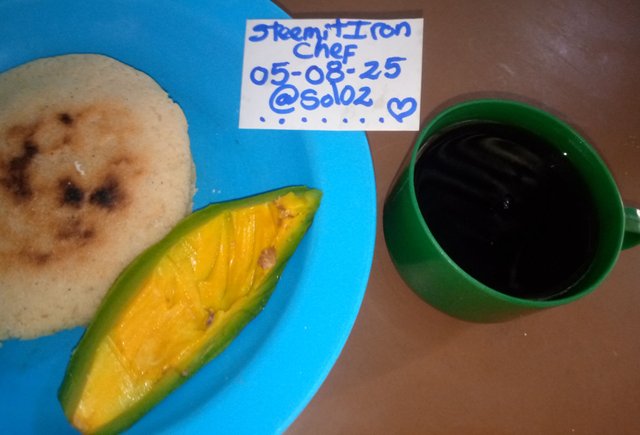 Steemit Iron
Chef
05-08-25
@Sol02